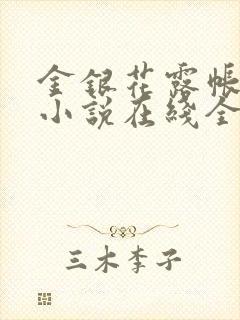 金银花露帐
小说在线全
三木李子